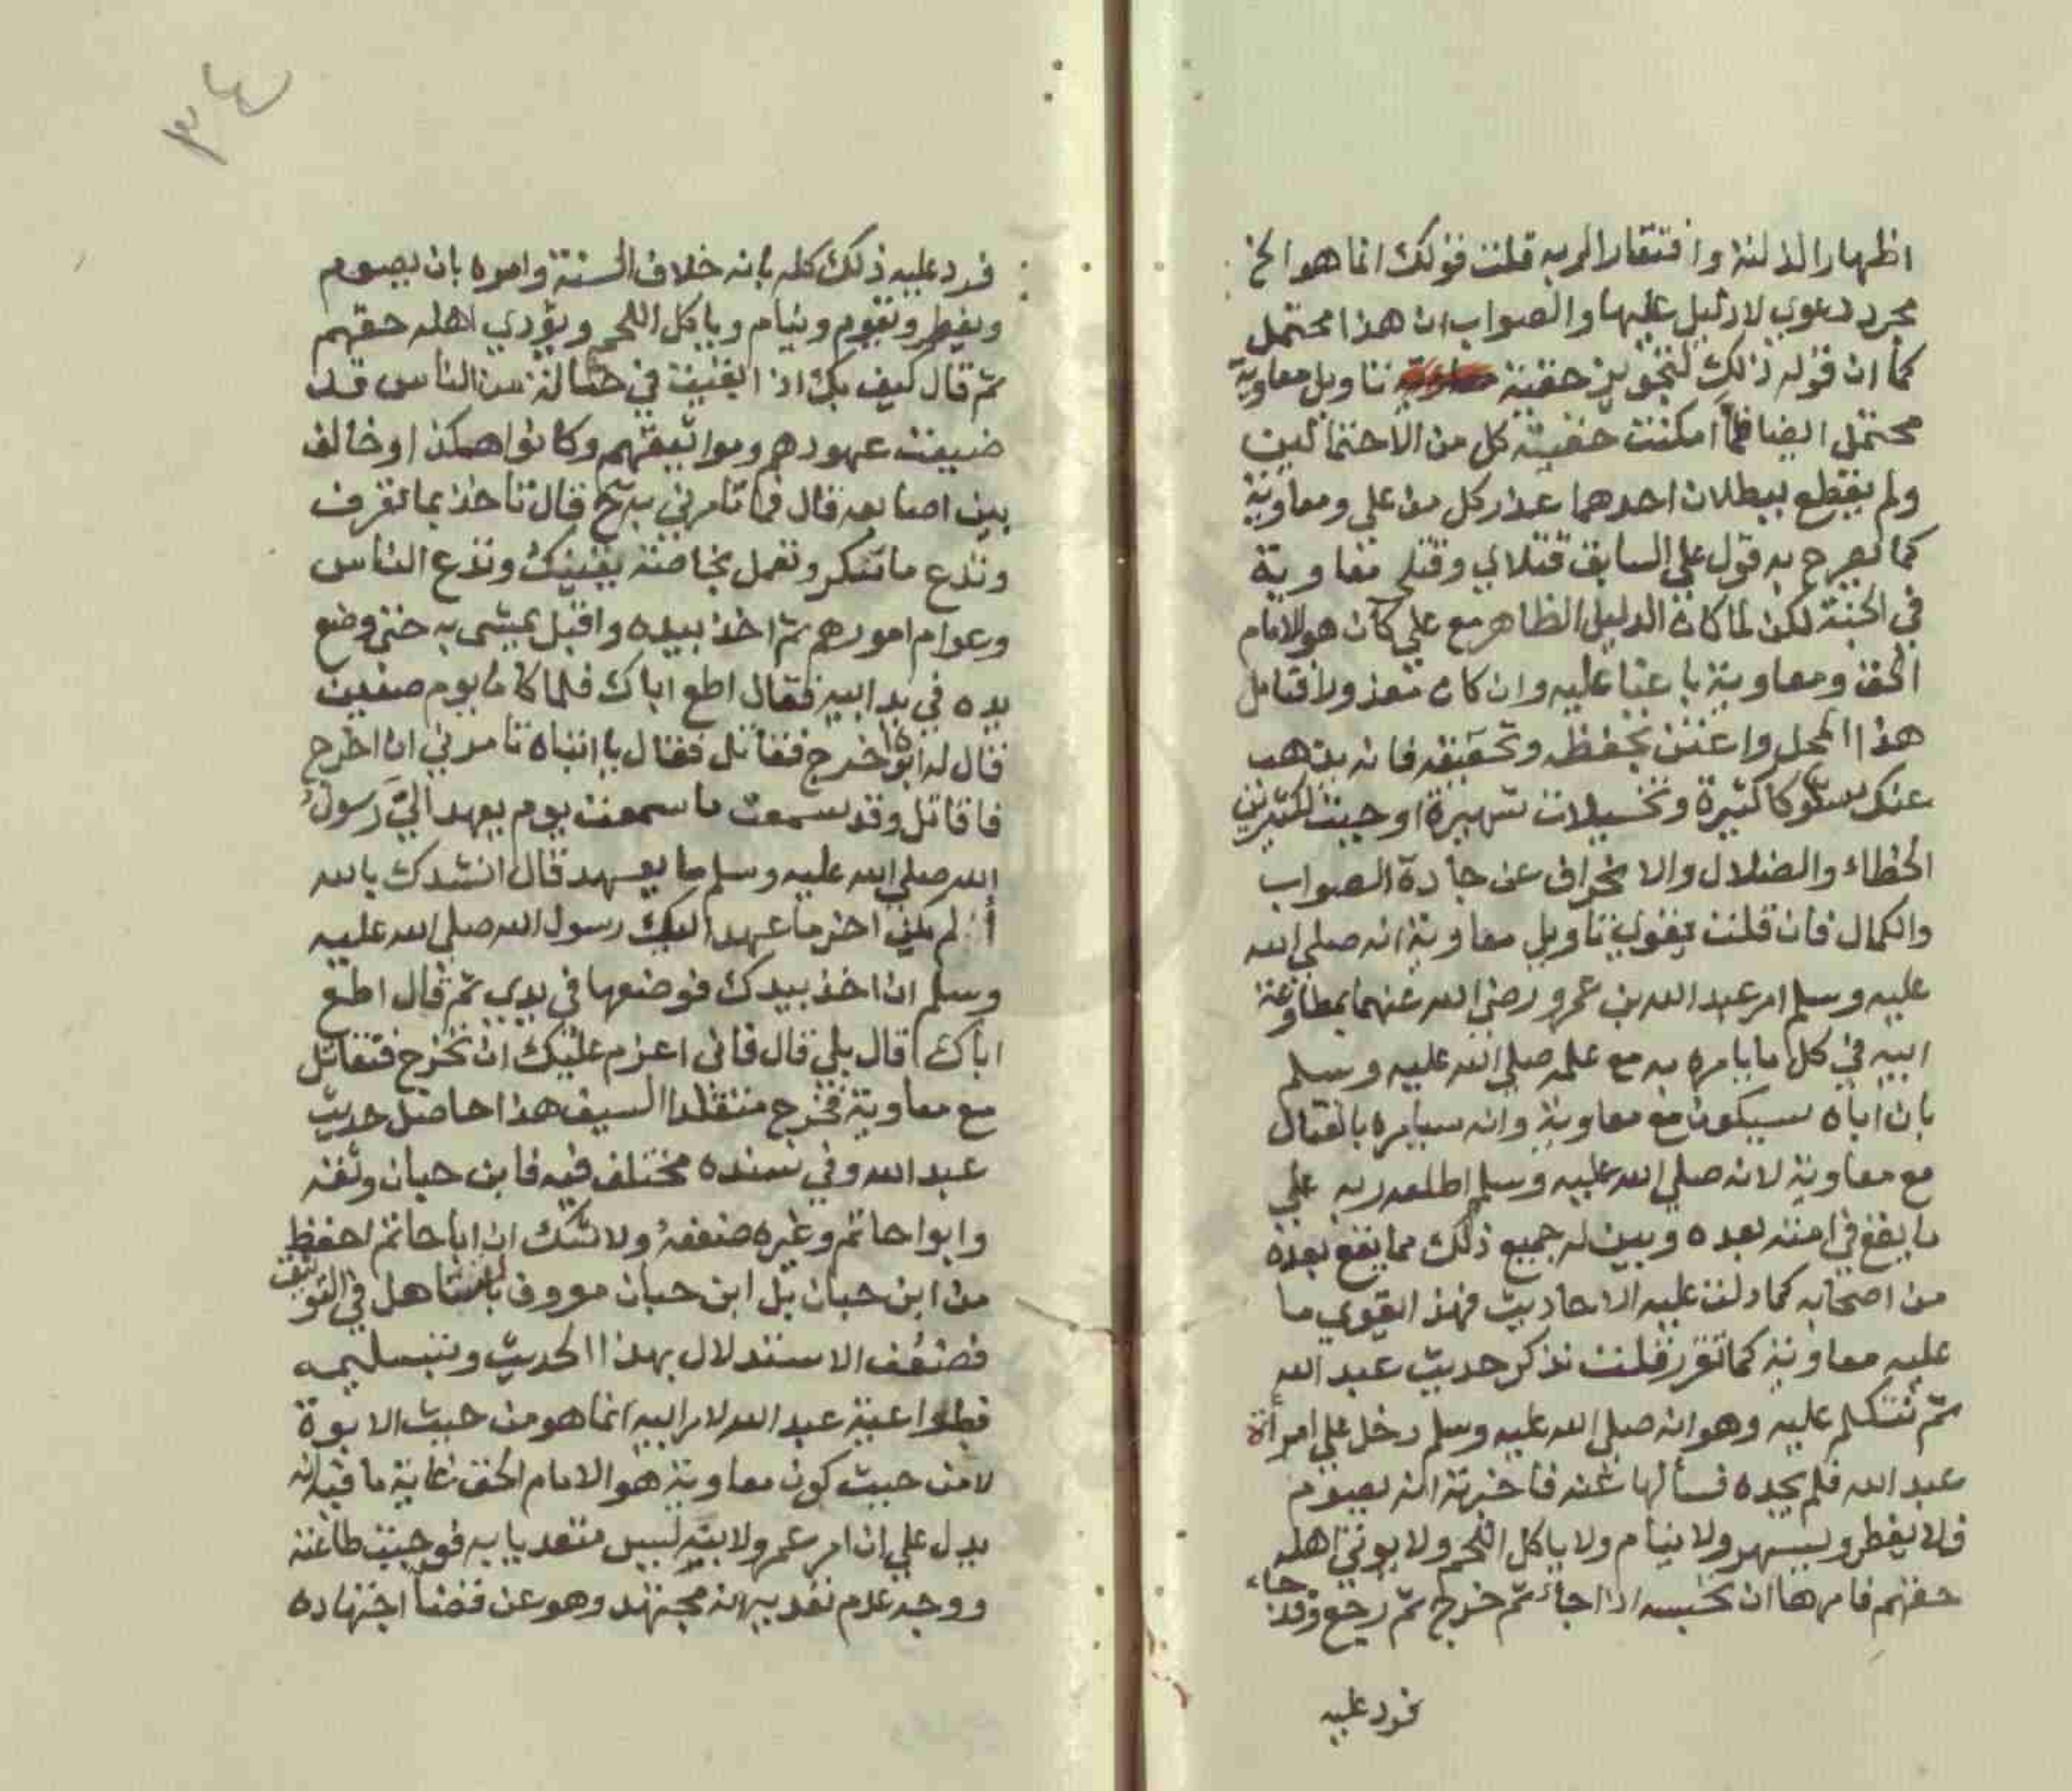 اظهار الذلة وافتقارا لربه قلت قولك انما هو الخ
مجرد دعوي لا دليل عليها والصواب ان هذا محتمل
كما ان قوله ذلك لتجويز حقية تاويل معاوية
محتمل ايضا فلما امكنت حقية كل من الاحتمالين
ولم يقطع ببطلان احدهما عذر كل من علي ومعاوية
كما يصرح به قول علي السابق قتلاي وقتلي معاوية
في الجنة لكن لما كان الدليل الظاهر مع علي كان هو الامام
الحق ومعاوية باغيا عليه وان كان معذورا فتامل
هذا المحل واعتن بحفظه وتحقيقه فانه يذهب
عنك شكوكا كثيرة وتخييلات شهيرة اوجبت لكثيرين
الخطاء والضلال والانحراف عن جادة الصواب
والكمال فان قلت يقوي تاويل معاوية انه صلي الله
عليه وسلم امر عبد الله بن عمرو رضي الله عنهما بمطاوعة
ابيه في كل ما يامره به مع علمه صلي الله عليه وسلم
بان اباه سيكون مع معاوية وانه سيامره بالقتال
مع معاوية لانه صلي الله عليه وسلم اطلعه ربه علي
ما يقع في امته بعده وبين له جميع ذلك مما يقع بعده
من اصحابه كما دلت عليه الاحاديث فهذا يقوي ما
عليه معاوية كما تقرر قلت نذكر حديث عبد الله
ثم نتكلم عليه وهو انه صلي الله عليه وسلم دخل علي امرأة
عبد الله فلم يجده فسألها عنه فاخبرته انه يصوم
فلا يفطر ويسهر ولا ينام ولا ياكل اللحم ولا يوتي اهله
حقهم فامرها ان تحبسه اذا جاء ثم خرج ثم رجع وقد جاء
فرد عليه
٣٤
فرد عليه ذلك كله بانه خلاف السنة وامره بان يصوم
ويفطر ويقوم وينام وياكل اللحم ويؤدي اهله حقهم
ثم قال كيف بك اذا بقيت في حثالة من الناس قد
ضيعت عهودهم ومواثيقهم وكانوا هكذا وخالف
بين اصابعه قال فما تامرني به ح قال تاخذ بما تعرف
وتدع ما تنكر وتعمل بخاصة نفسك وتدع الناس
وعوام امورهم ثم اخذ بيده واقبل يمشي به حتى وضع
يده في يد ابيه فقال اطع اباك فلما كان يوم صفين
قال له ابوه اخرج فقاتل فقال يا ابتاه تامرني ان اخرج
فاقاتل وقد سمعت ما سمعت يوم يعهد اليّ رسول
الله صلي الله عليه وسلم ما يعهد قال انشدك بالله
ألم يكن اخر ما عهد اليك رسول الله صلي الله عليه
وسلم ان اخذ بيدك فوضعها في يدي ثم قال اطع
اباك قال بلي قال فاني اعزم عليك ان تخرج فتقاتل
مع معاوية فخرج متقلدا السيف هذا حاصل حديث
عبد الله وفي سنده مختلف فيه فابن حبان وثقه
وابوا حاتم وغيره ضعفه ولا شك ان ابا حاتم احفظ
من ابن حبان بل ابن حبان معروف بالتساهل في التوثيق
فضعف الاستدلال بهذا الحديث وبتسليمه
فطواعية عبد الله لامر ابيه انما هو من حيث الابوة
لا من حيث كون معاوية هو الامام الحق غاية ما فيه انه
يدل علي ان امر عمرو لابنه ليس متعديا به فوجبت طاعته
ووجه عدم تعديه انه مجتهد وهو عن قضا اجتهاده